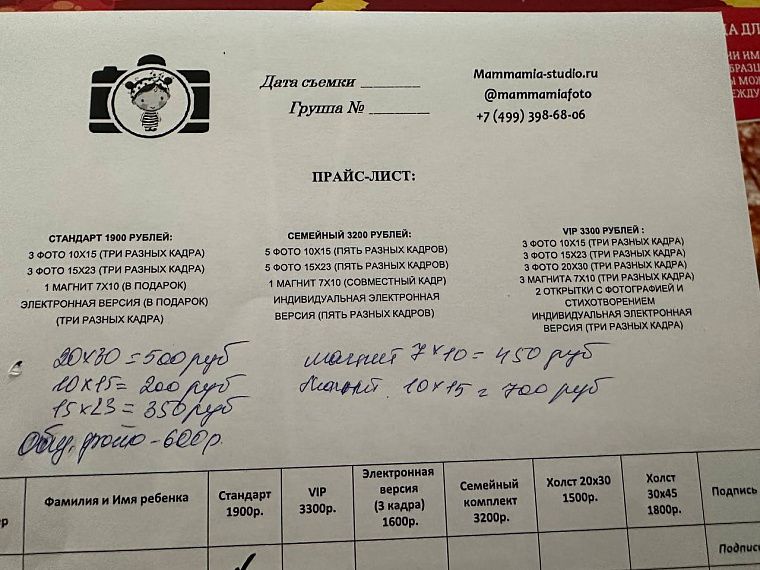 Дата съемки
Группа №
Mammamia-studio.ru
@mammamiafoto
+7 (499) 398-68-06
ПРАЙС-ЛИСТ:
СТАНДАРТ 1900 РУБЛЕЙ:
3 ФОТО 10Х15 (ТРИ РАЗНЫХ КАДРА)
3 ФОТО 15Х23 (ТРИ РАЗНЫХ КАДРА)
1 МАГНИТ 7Х10 (В ПОДАРОК)
ЭЛЕКТРОННАЯ ВЕРСИЯ (В ПОДАРОК)
(ТРИ РАЗНЫХ КАДРА)
СЕМЕЙНЫЙ 3200 РУБЛЕЙ:
5 ФОТО 10Х15 (ПЯТЬ РАЗНЫХ КАДРОВ)
5 ФОТО 15Х23 (ПЯТЬ РАЗНЫХ КАДРОВ)
1 МАГНИТ 7Х10 (СОВМЕСТНЫЙ КАДР)
ИНДИВИДУАЛЬНАЯ ЭЛЕКТРОННАЯ
ВЕРСИЯ (ПЯТЬ РАЗНЫХ КАДРОВ)
VIP 3300 РУБЛЕЙ :
3 ФОТО 10Х15 (ТРИ РАЗНЫХ КАДРА)
3 ФОТО 15Х23 (ТРИ РАЗНЫХ КАДРА)
3 ФОТО 20Х30 (ТРИ РАЗНЫХ КАДРА)
3 МАГНИТА 7Х10 (ТРИ РАЗНЫХ КАДРА)
2 ОТКРЫТКИ С ФОТОГРАФИЕЙ И
СТИХОТВОРЕНИЕМ
ИНДИВИДУАЛЬНАЯ ЭЛЕКТРОННАЯ
ВЕРСИЯ (ТРИ РАЗНЫХ КАДРА)
20х30 = 500 руб
10х15 = 200 руб
15х23 = 350 руб
Общ. фото - 600р.
магнит 7х10 = 450 руб
Магнит 10х15 = 700 руб
Фамилия и Имя ребенка
Стандарт
1900р.
VIP
3300р.
Электронная
версия
(3 кадра)
1600р.
Семейный
комплект
3200р.
Холст 20х30
1500р.
Холст
30х45
1800р.
Подпись